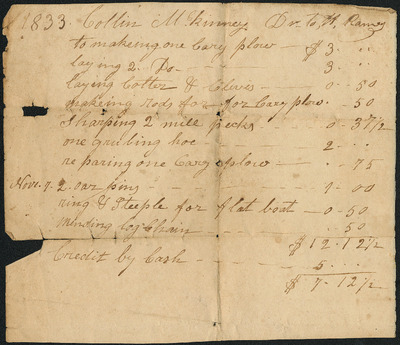 1833. Collin McKinney Dr. to H. Ramey
to makeing one Cary plow — $3 . ..
laying 2. Do — 3 . ..
Laying Colter & Clives — 0 . 50
makeing rods for for Cary plow . 50
Sharping 2 mill pecks — 0 . 37½
one grubing hoe — 2 . ..
reparing one Cary plow — .. 75
Nove. 7. 2. oar pins — 1 . 00
ring & Steeple for flat boat — 0 . 50
mending log Chain . 50
$12 . 12½
Credit by Cash — 5 . ..
$7 . 12½